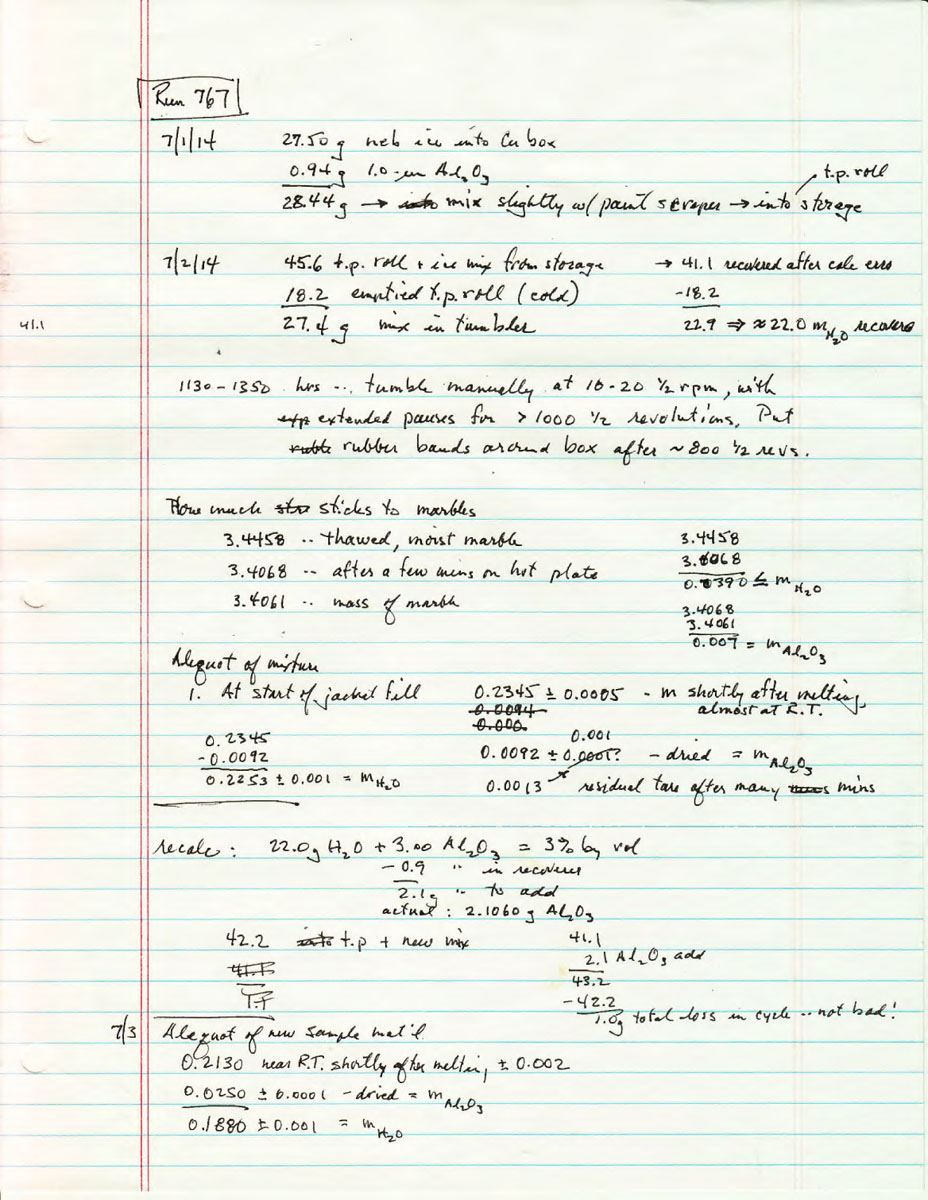 Run 767
7/1/14 27.50 g neb ice into Cu box
0.94 g 1.0-um Al2O3 t.p. roll
28.44 g → into mix slightly w/ paint scraper → into storage
7/2/14 45.6 t.p. roll + ice mix from storage → 41.1 recovered after calc erro
18.2 emptied t.p. roll (cold) -18.2
41.1 27.4 g mix in tumbler 22.9 ⇒ ≈22.0 mH2O recovere
1130-1350 hrs -- tumble manually at 10-20 1/2 rpm, with
exp extended pauses for > 1000 1/2 revolutions. Put
rubbe rubber bands around box after ~800 1/2 revs.
How much sticks to marbles
3.4458 -- thawed, moist marble 3.4458
3.4068 -- after a few mins on hot plate 3.4068
0.0390 ≤ mH2O
3.4061 -- mass of marble 3.4068
3.4061
0.007 = mAl2O3
Aliquot of mixture
1. At start of jacket fill 0.2345 ± 0.0005 - m shortly after melting, almost at R.T.
0.0094
0.000.
0.2345 0.001
-0.0092 0.0092 ± 0.0005? - dried = mAl2O3
0.2253 ± 0.001 = mH2O 0.0013 residual tare after many mins
recalc: 22.0g H2O + 3.00 Al2O3 = 3% by vol
-0.9 " in recovered
2.1g " to add
actual: 2.1060 g Al2O3
42.2 into t.p + new mix 41.1
2.1 Al2O3 add
43.2
-42.2
1.0g total loss in cycle -- not bad!
7/3 Aliquot of new sample mat'l.
0.2130 near R.T. shortly after melting ± 0.002
0.0250 ± 0.0001 - dried = mAl2O3
0.1880 ± 0.001 = mH2O